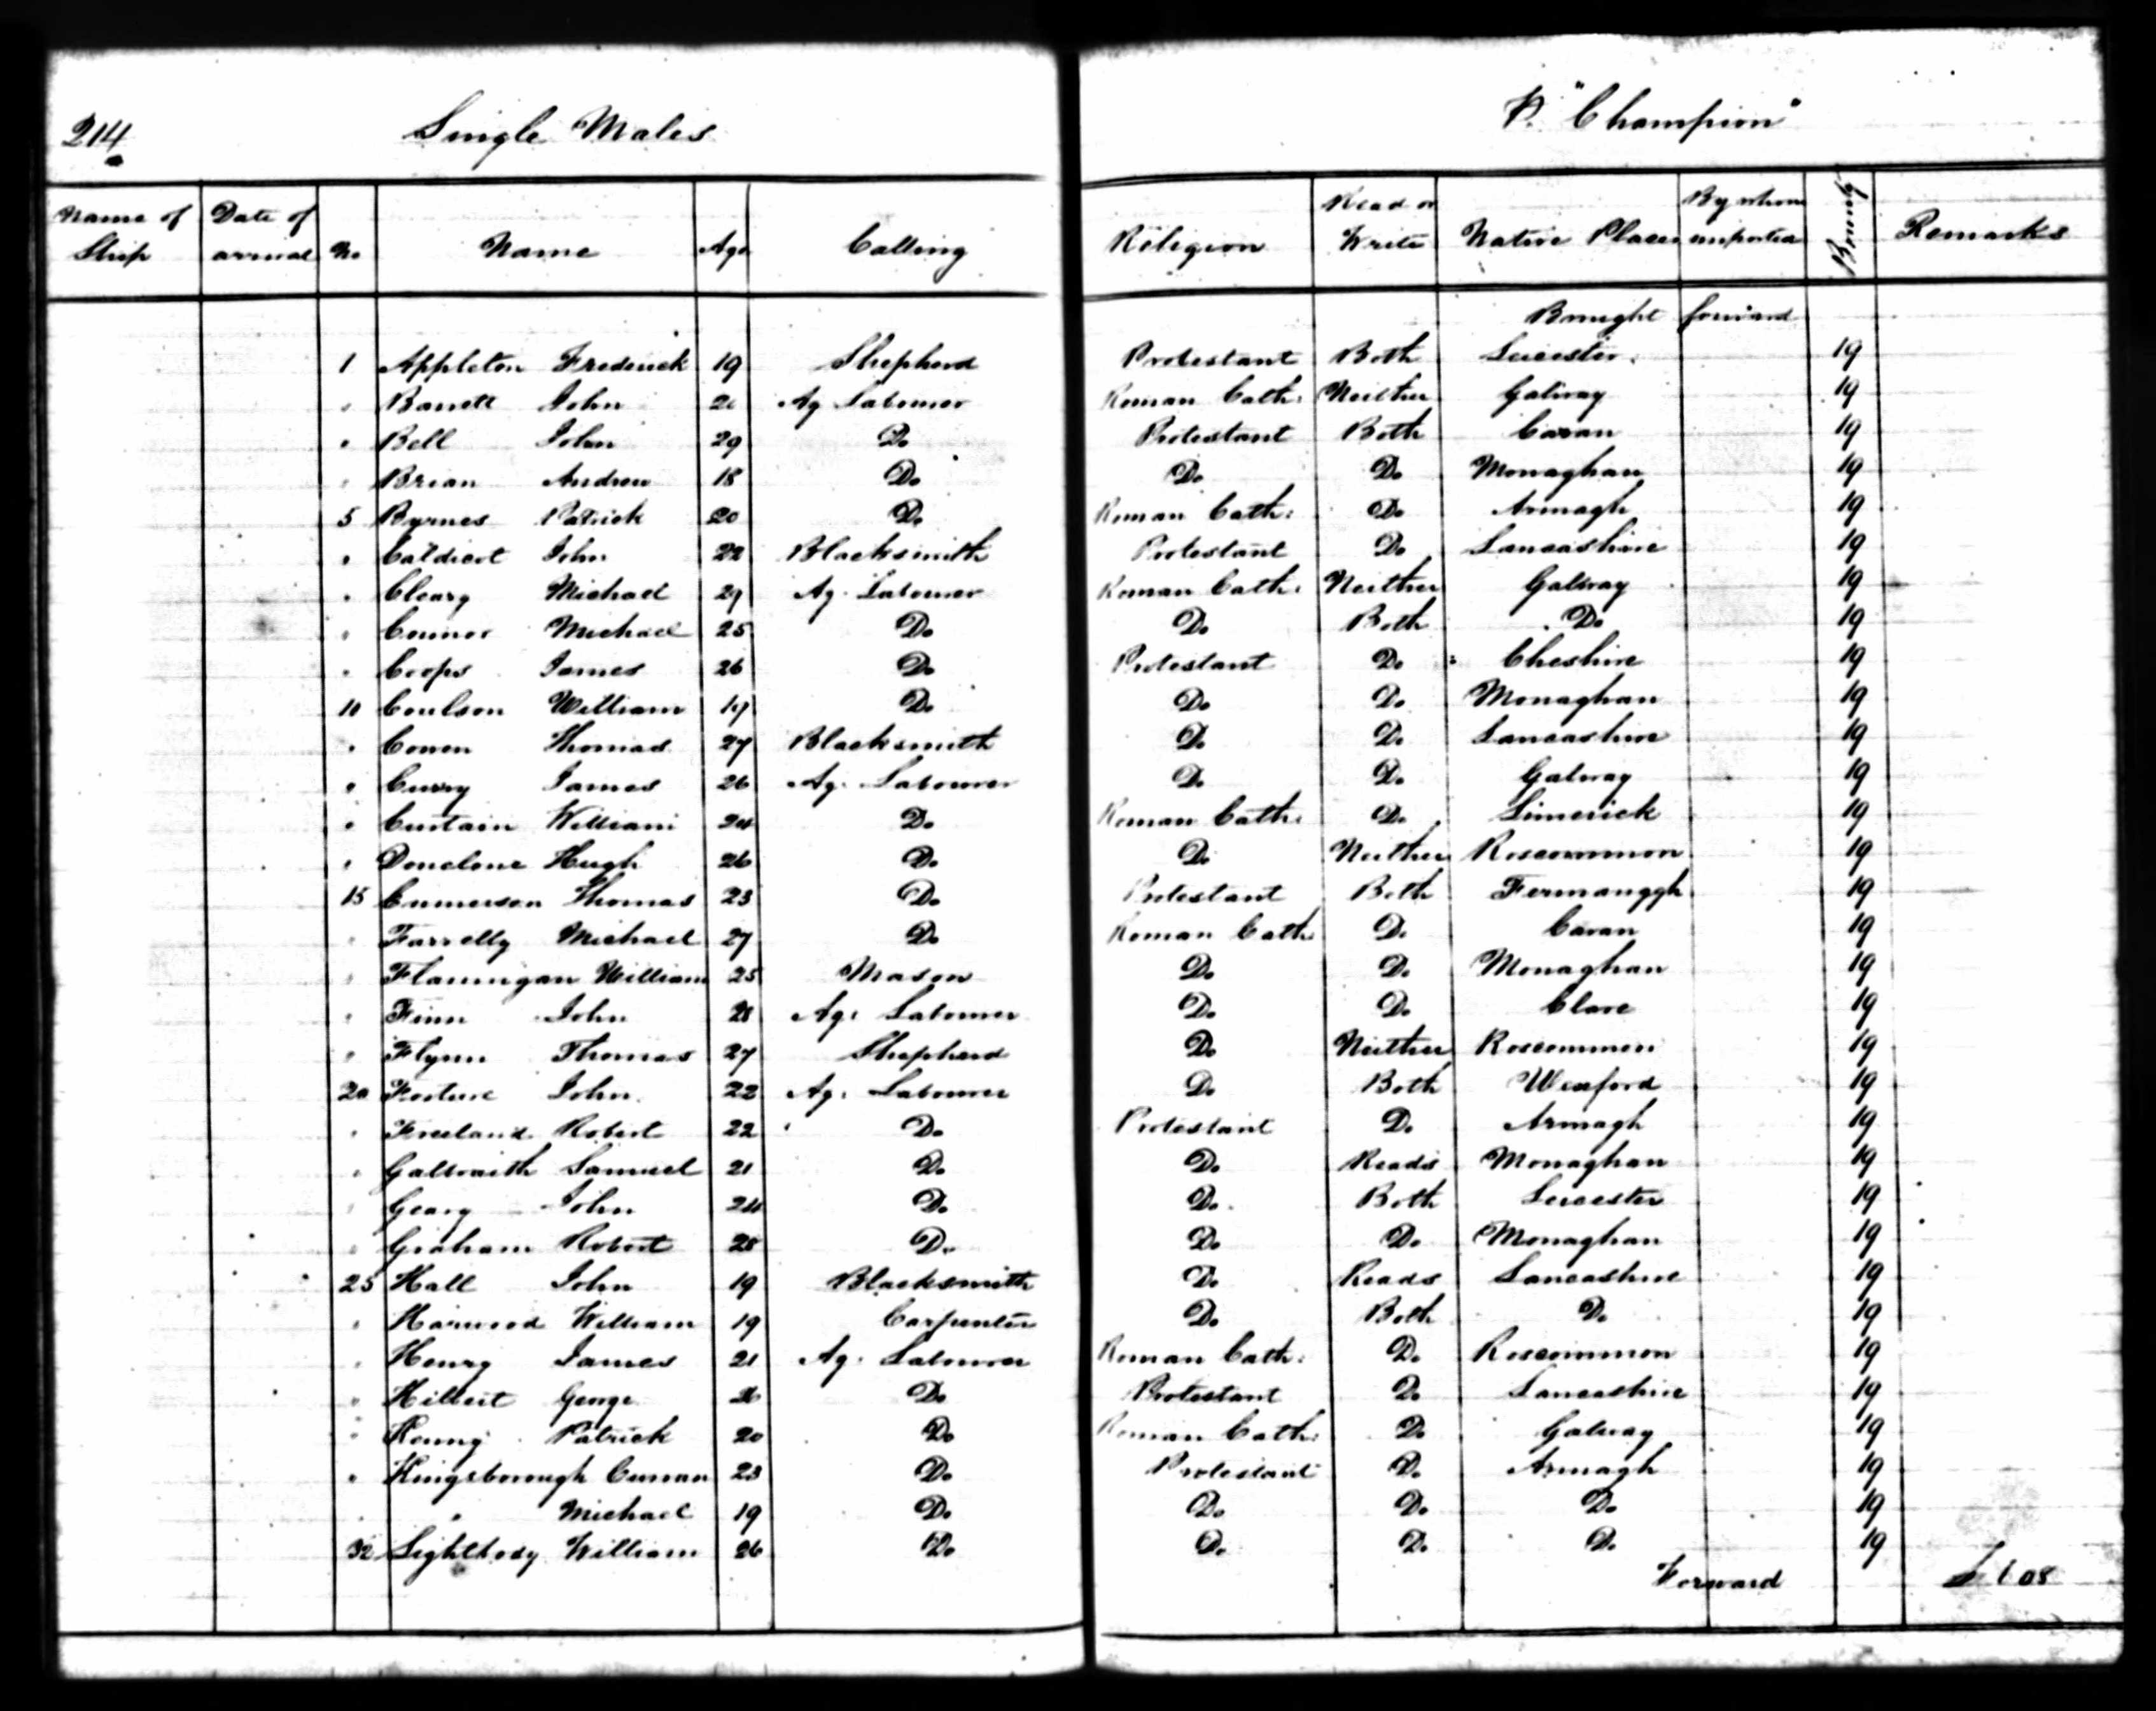 214 Single Males P. "Champion"
Name of Ship Date of arrival No Name Age Calling Religion Read or Write Native Place By whom imported Bounty Remarks
Brought forward
1 Appleton Frederick 19 Shepherd Protestant Both Leicester 19
" Barrett John Ag Labourer Roman Cath: Neither Galway 19
" Bell John 29 Do Protestant Both Cavan 19
" Brian Andrew 18 Do Do Do Monaghan 19
5 Byrnes Patrick 20 Do Roman Cath: Do Armagh 19
" John 22 Blacksmith Protestant Do Lancashire 19
" Cleary Michael 29 Ag. Labourer Roman Cath: Neither Galway 19
" Connor Michael 25 Do Do Both Do 19
" Coops James 26 Do Protestant Do Cheshire 19
10 Coulson William 19 Do Do Do Monaghan 19
" Cowen Thomas 27 Blacksmith Do Do Lancashire 19
" Curry James 26 Ag. Labourer Do Do Galway 19
" Curtain William 24 Do Roman Cath: Do Limerick 19
" Donelone Hugh 26 Do Do Neither Roscommon 19
15 Emmerson Thomas 23 Do Protestant Both Fermanggh 19
" Farrelly Michael 27 Do Roman Cath: Do Cavan 19
" Flannigan William 25 Mason Do Do Monaghan 19
" Finn John Ag: Labourer Do Do Clare 19
" Flynn Thomas 27 Shepherd Do Neither Roscommon 19
20 Fortune John 22 Ag. Labourer Do Both Wexford 19
" Freeland Robert 22 Do Protestant Do Armagh 19
" Galbraith Samuel 21 Do Do Reads Monaghan 19
" Geary John 24 Do Do Both Leicester 19
" Graham Robert Do Do Do Monaghan 19
25 Hall John 19 Blacksmith Do Reads Lancashire 19
" Harwood William 19 Carpenter Do Both Do 19
" Henry James 21 Ag. Labourer Roman Cath: Do Roscommon 19
" Hilbert George Do Protestant Do Lancashire 19
" Kenny Patrick 20 Do Roman Cath: Do Galway 19
" Kingsborough Curran 23 Do Protestant Do Armagh 19
" " Michael 19 Do Do Do Do 19
32 Lightbody William 26 Do Do Do Do 19
Forward £608